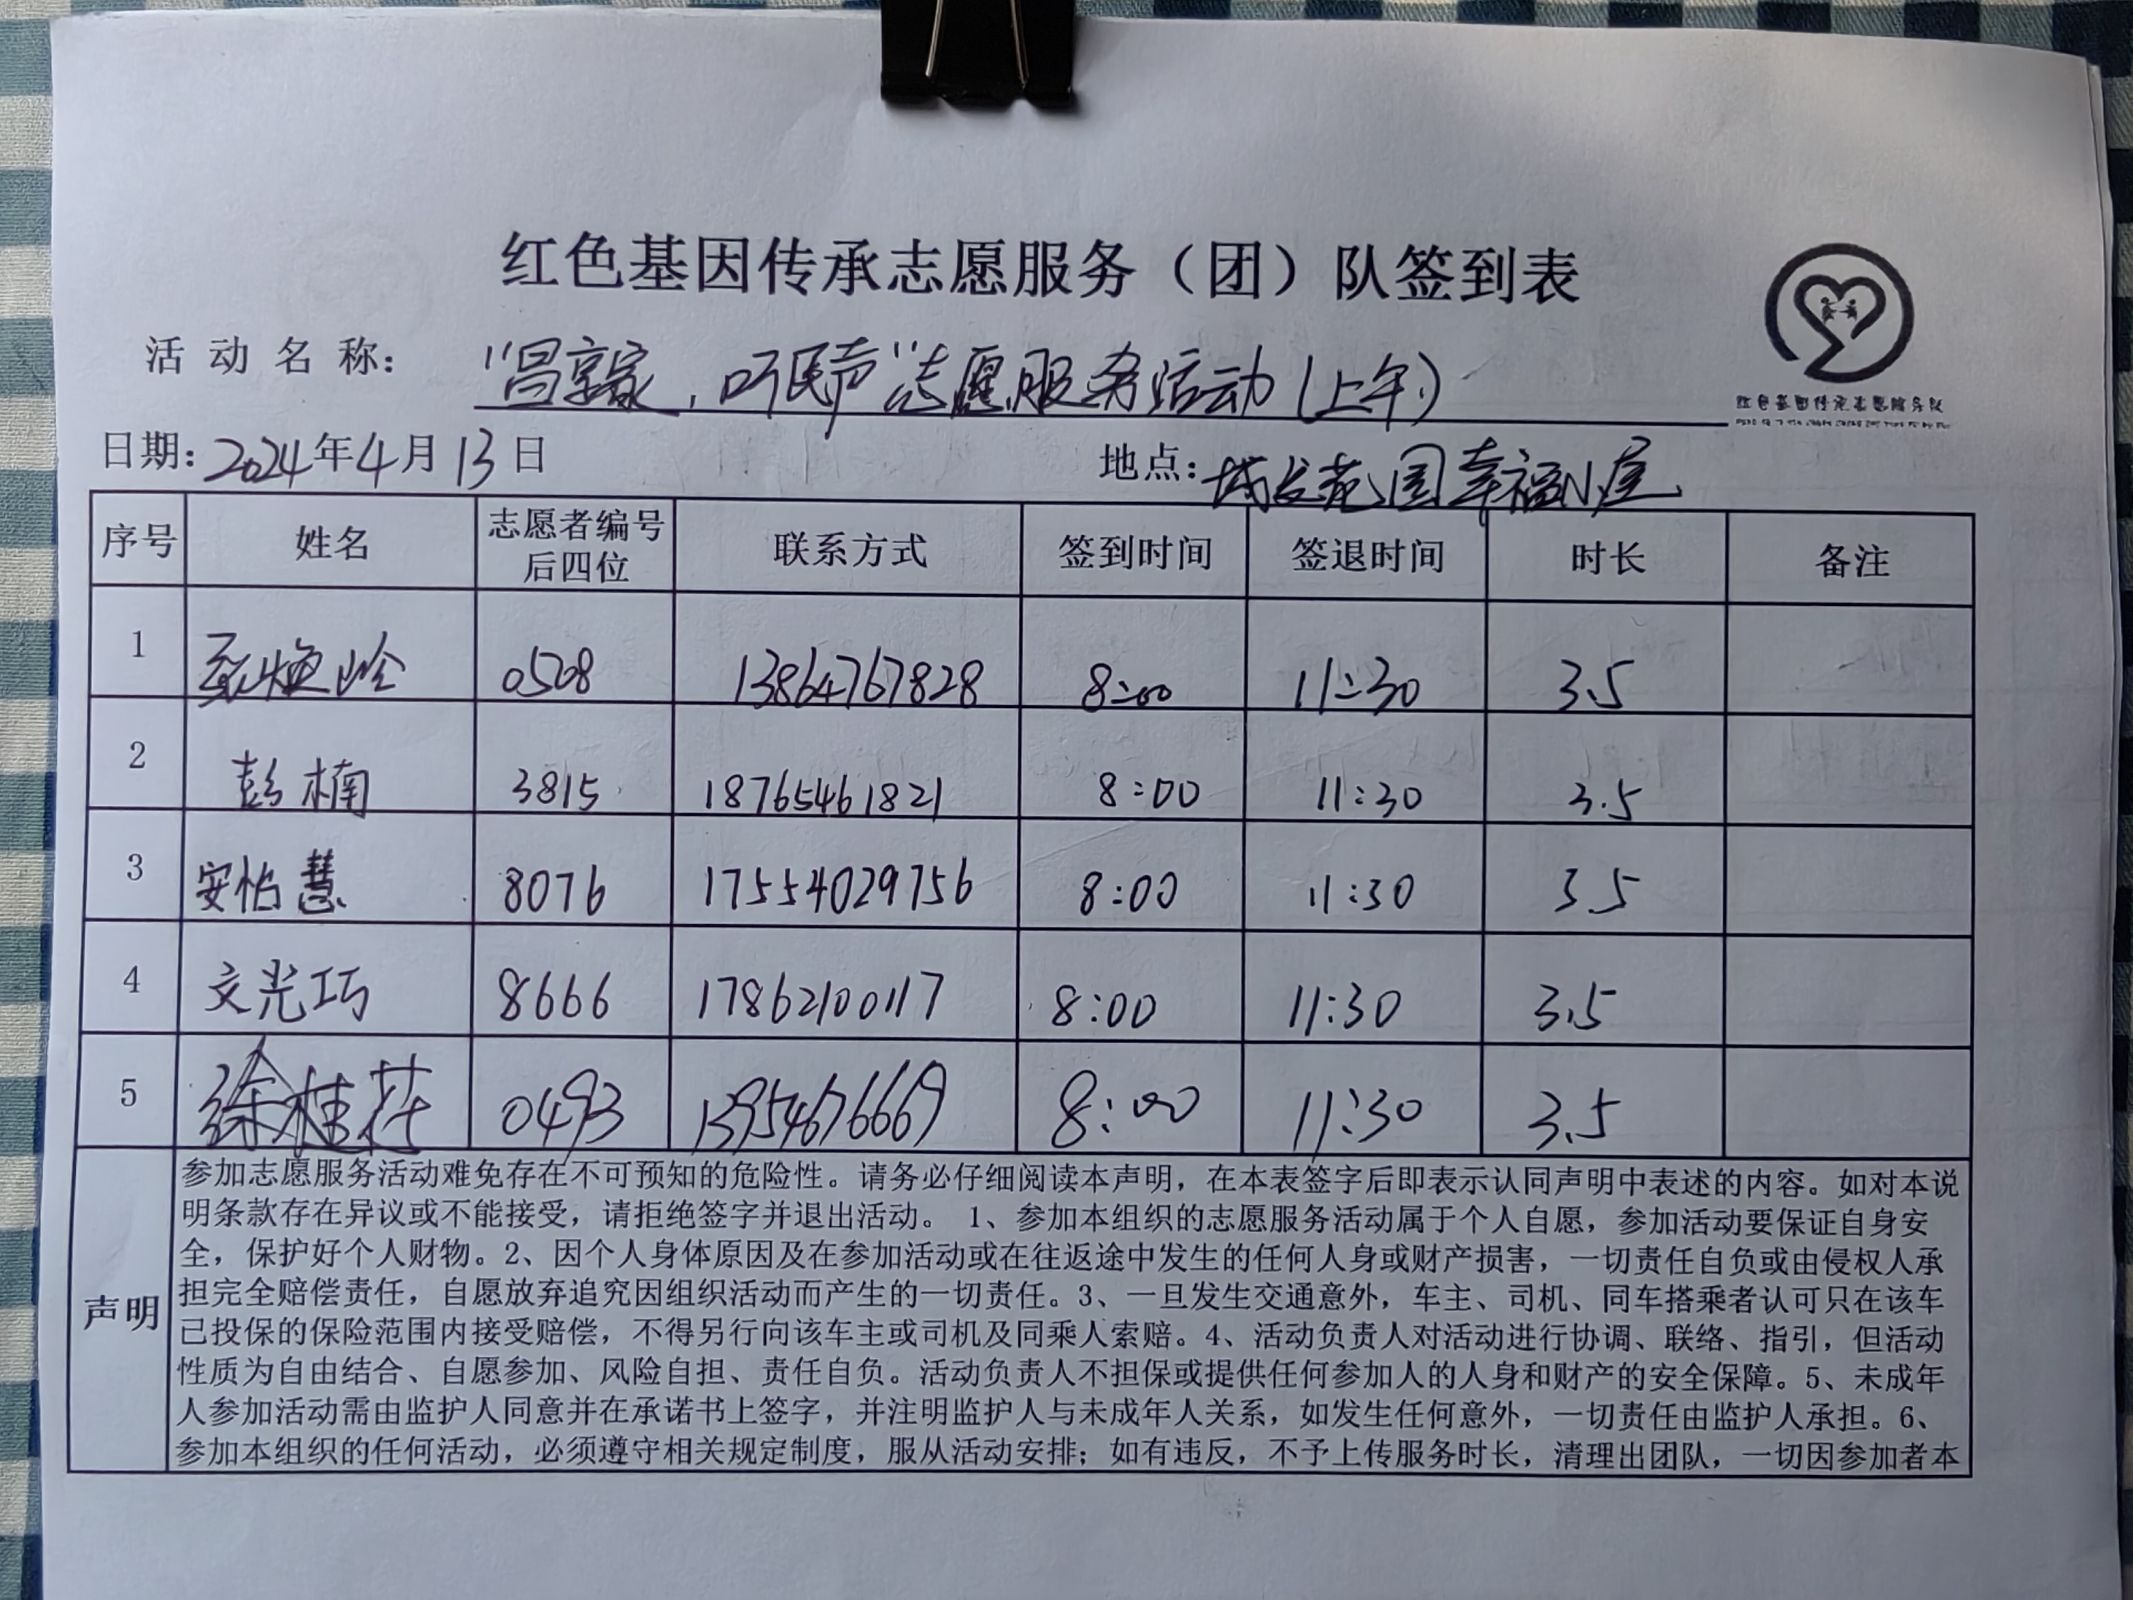 红色基因传承志愿服务（团）队签到表
活动名称： “昌享家，听民声”志愿服务活动（上午）
红色基因传承志愿服务队
日期：2024年4月13日 地点：城发花园幸福小屋
序号 姓名 志愿者编号后四位 联系方式 签到时间 签退时间 时长 备注
1 焕岭 0508 13864767828 8:00 11:30 3.5
2 彭楠 3815 18765461821 8:00 11:30 3.5
3 安怡慧 8076 17554029756 8:00 11:30 3.5
4 文光巧 8666 17862100117 8:00 11:30 3.5
5 徐桂花 0493 13954676669 8:00 11:30 3.5
声明
参加志愿服务活动难免存在不可预知的危险性。请务必仔细阅读本声明，在本表签字后即表示认同声明中表述的内容。如对本说
明条款存在异议或不能接受，请拒绝签字并退出活动。 1、参加本组织的志愿服务活动属于个人自愿，参加活动要保证自身安
全，保护好个人财物。2、因个人身体原因及在参加活动或在往返途中发生的任何人身或财产损害，一切责任自负或由侵权人承
担完全赔偿责任，自愿放弃追究因组织活动而产生的一切责任。3、一旦发生交通意外，车主、司机、同车搭乘者认可只在该车
已投保的保险范围内接受赔偿，不得另行向该车主或司机及同乘人索赔。4、活动负责人对活动进行协调、联络、指引，但活动
性质为自由结合、自愿参加、风险自担、责任自负。活动负责人不担保或提供任何参加人的人身和财产的安全保障。5、未成年
人参加活动需由监护人同意并在承诺书上签字，并注明监护人与未成年人关系，如发生任何意外，一切责任由监护人承担。6、
参加本组织的任何活动，必须遵守相关规定制度，服从活动安排；如有违反，不予上传服务时长，清理出团队，一切因参加者本